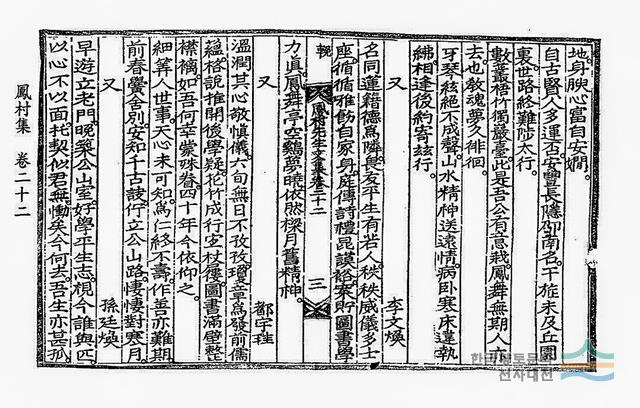 地身腴心富自安嫺
自古賢人多運否安豐長隱邵南名干旌未及丘園
裏世路終難陟太行
數叢梧竹獨巖臺此是吾公有意栽鳳舞無期人亦
去也敎魂夢久徘徊
牙琴絃絶不成聲山水精神送遠情病卧寒床違執
紼相逢後約寄玆行
又 李文煥
名同蓮籍德爲隣與友平生有若人秩秩威儀多士
座循循雅飭自家身庭傳詩禮昆謨裕案貯圖書學
力眞鳳舞亭空鷄夢曉依然樑月舊精神
輓 鳳村先生文集卷二十二 三
又 都宇珪
溫潤其心敬愼儀六旬無日不孜孜瓊章爲發前儒
蘊格說推開後學疑花竹成行室杖屨圖書滿壁整
襟褵如吾何幸蒙殊眷四十年今依仰之
細筭人世事天心未可知爲仁終不壽作善亦難期
前春黌舍別安知千古訣佇立公山路悽悽對寒月
又 孫廷煥
早遊立老門晩築公山室好學平生志視今誰與匹
以心不以面托契似君無慟矣今何去吾生亦甚孤
鳳村集 卷二十二
한국향토문화
전자대전